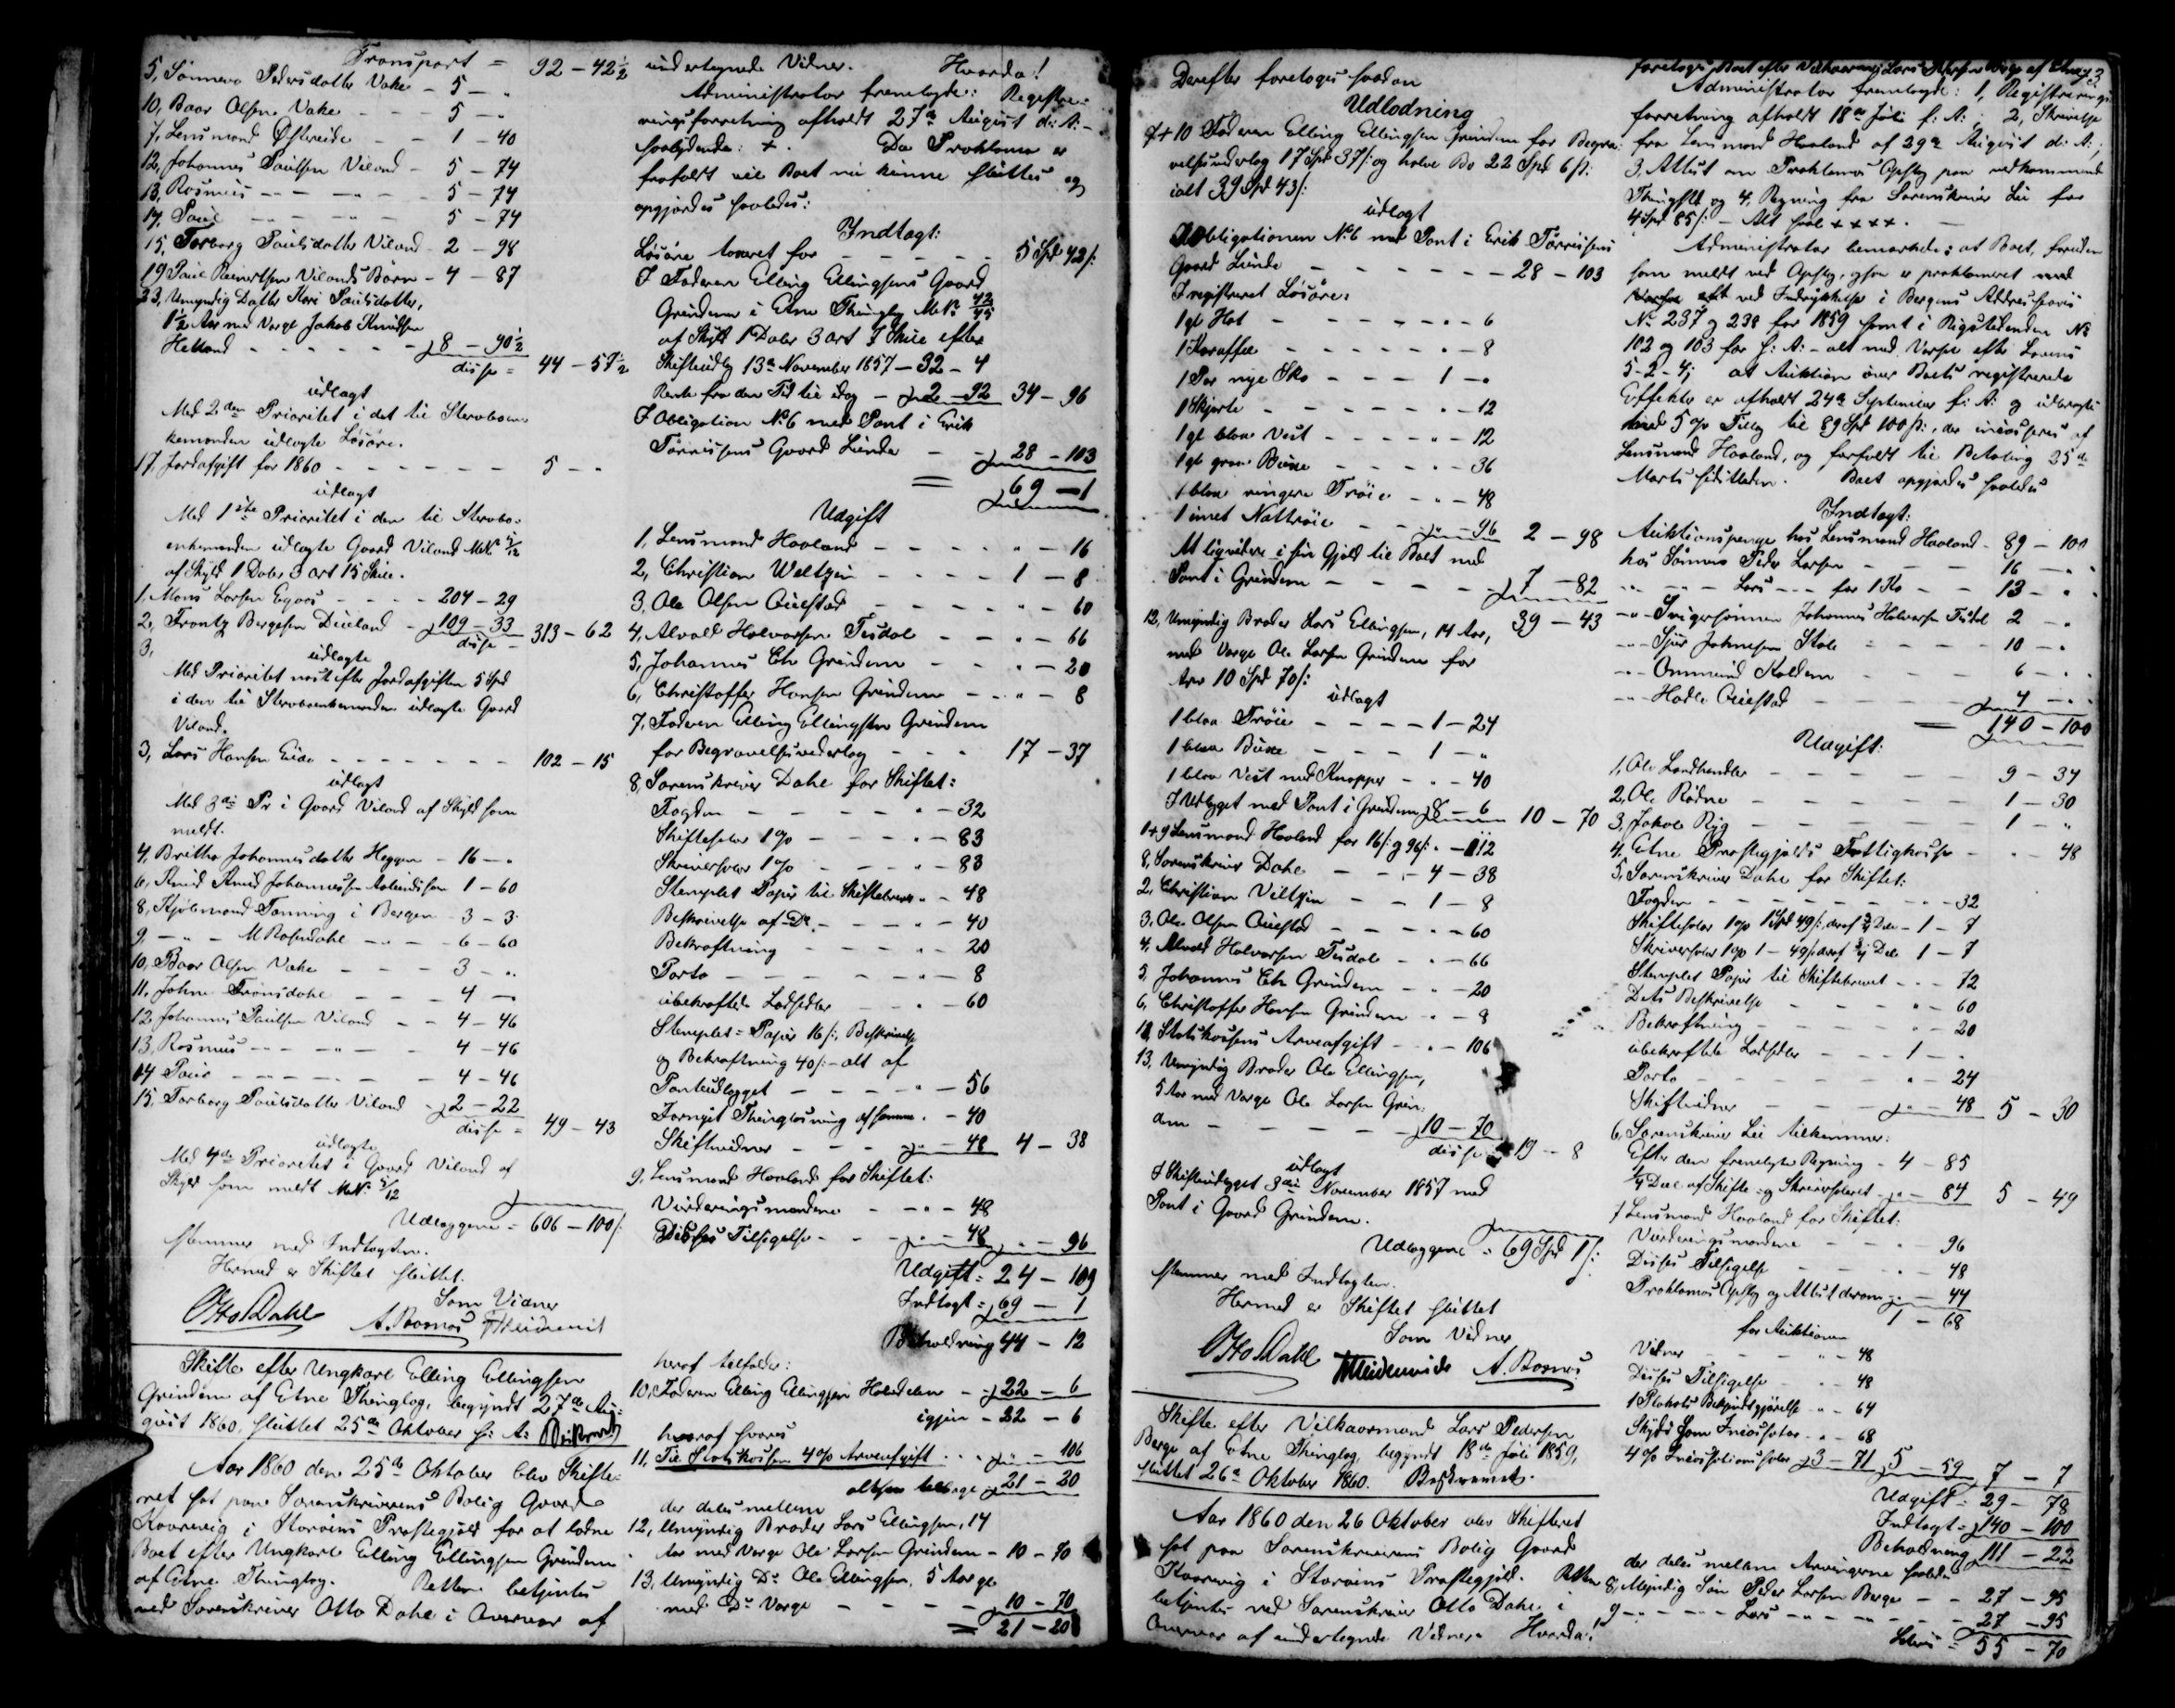 Transport = 92 - 42 1/2
5, Sønneva Pedersdatter Vake - 5 - "
10, Baar Olsen Vake - - - 5 - "
7, Lensmand Østreide - - 1 - 40
12, Johannes Paulsen Viland - 5 - 74
13, Rasmus -- -- - 5 - 74
14, Paul -- -- - 5 - 74
15, Torborg Paulsdatter Viland - 2 - 98
19 Paul Reinertsen Vilands Børn - 4 - 87
23, Umyndig Datter Kari Paulsdatter,
1 1/2 Aar med Verge Jakob Knudsen
Helland - - - - - 8 - 90 1/2
disse = 44 - 57 1/2
udlagt
Med 2den Prioritet i det til Stervboen-
kemanden udlagte Løsøre.
17, Jordafgift for 1860 - - - - - - 5 - "
udlagt
Med 1ste Prioritet i den til Stervbo-
enkemanden udlagte Gaard Viland
af Skyld 1 Daler 3 ort 15 Skill.
1, Mons Larsen - - - - 204 - 29
2, Frantz Bergesen - 109 - 33 313 - 62
3, disse -
udlagte
Med Prioritet næst efter Jordafgiften 5 Spd
i den til Stervboenkemanden udlagte Gaard
Viland.
3, Lars Hansen Eide - - - - - - - 102 - 15
udlagt
Med 3die Pr i Gaard Viland af Skyld som
meldt.
4, Britha Johannesdatter Heggen - 16 - "
6, Knud Johannessen 1 - 60
8, Kjøbmand Fanning i Bergen - 3 - 3
9, - " - M Rosendahl - - - 6 - 60
10, Baar Olsen Vake - - - 3 - "
11, John - - - 4 - "
12 Johannes Paulsen Viland - - 4 - 46
13, Rasmus -- -- - - 4 - 46
14 Paul -- -- - - 4 - 46
15, Torborg Paulsdatter Viland - 2 - 22
disse = 49 - 43
udlagte
Med 4de Prioritet i Gaard Viland af
Skyld som meldt
Udlæggene = 606 - 100/:
stemmer med Indtægten.
Hermed er Skiftet sluttet.
Som Vidner
Otto Dahl A. Rosnes
Skifte efter Ungkarl Elling Ellingsen
Grindem af Etne Thinglag, begyndt 27de Au-
gust 1860, sluttet 25de Oktober s: A: Beskrevet
Aar 1860 den 25de Oktober blev Skifte-
ret sat paa Sorenskriverens Bolig Gaard
i Størøens Præstegjeld for at
Boet efter Ungkarl Elling Ellingsen Grindem
af Etne Thinglag. Retten betjentes
ved Sorenskriver Otto Dahl i Overvær af
undertegnede Vidner. Hvorda!
Administrator fremlagde: Registre-
ringsforretning afholdt 27de August d: A: -
saalydende: +. Da Proklama er
frafaldt vil Boet nu kunne sluttes og
opgjordes saaledes:
Indtægt:
Løsøre taxeret for - - - - - 5 Spd 42/:
I Faderen Elling Ellingsens Gaard
Grindem i Etne Thinglag MNo 42/45
af Skyld 1 Daler 3 ort 7 Skill efter
Skifteudlæg 13de November 1857 - 32 - 4
Rente fra den Tid til idag - 2 - 92 34 - 96
I Obligation No 6 med Pant i Erik
Tørrissens Gaard Lunde - - 28 - 103
= 69 - 1
Udgift
1, Lensmand Haaland - - - " - 16
2, Christian Weltzin - - - 1 - 8
3, Ole Olsen - - - " - 60
4, Alvald Halvorsen Tesdal - - " - 66
5, Johannes Eh Grindem - - " - 20
6, Christoffer Hansen Grindem - - " - 8
7, Faderen Elling Ellingsen Grindem
for Begravelsesvederlag - - - 17 - 37
8, Sorenskriver Dahl for Skiftet:
Fogden - - - - " - 32
Skiftesalær 1 % - - - - 83
Skriversalær 1 % - - - " - 83
Stemplet Papir til Skiftebrevet - " - 48
Beskrivelse af Do. - - - " - 40
Bekræftning - - - - " 20
Porto - - - - - " - 8
ubekræftede Lodsedler - - - 60
Stemplet Papir 16/:, Beskrivelse
og Bekræftning 40/: - alt af
Panteudlægget - - - - " - 56
Fornyet Thinglæsning af samme. - 40
Skiftevidner - - - " - 48 4 - 38
9, Lensmand Haaland for Skiftet:
Vurderingsmændene - - " - 48
Disses Tilsigelse - - - " - 48 " - 96
Udgift = 24 - 109
Indtægt = 69 - 1
Beholdning 44 - 12
heraf tilfalder:
10, Faderen Elling Ellingsen Halvdelen - 22 - 6
igjen - 22 - 6
heraf svares
11, Til Statskassen 4 % Arveafgift - - " - 106
altsaa tilbage - 21 - 20
der deles mellem
12, Umyndig Broder Lars Ellingsen, 14
Aar med Verge Ole Larsen Grindem - 10 - 70
13, Umyndig Do Ole Ellingsen, 5 Aar gl
med Do Verge - - - - - 10 - 70
= 21 - 20
Derefter foretoges saadan
Udlodning
7 + 10 Faderen Elling Ellingsen Grindem for Begra-
velsesvederlag 17 Spd 37/: og halve Bo 22 Spd 6 /:
ialt 39 Spd 43/:
udlagt
Obligationen No 6 med Pant i Erik Tørrissens
Gaard Lunde - - - - - - - 28 - 103
I registreret Løsøre:
1 gl Hat - - - - - " - 6
1 Karaffel - - - - - " - 8
1 Par nye Sko - - - 1 - "
1 Skjorte - - - - - " - 12
1 gl blaa Vest - - - - " - 12
1 gl graa Buxe - - - - " - 36
1 blaa ringere Trøie - - " - 48
1 Nattrøie - - " - 96 2 - 98
At liqvidere i sin Gjæld til Boet med
Pant i Grindem - - - - - 7 - 82
39 - 43
12, Umyndig Broder Lars Ellingsen, 14 Aar,
med Verge Ole Larsen Grindem for
Arv 10 Spd 70/:
udlagt
1 blaa Trøie - - - - 1 - 24
1 blaa Buxe - - - 1 - "
1 blaa Vest med Knapper - " - 40
I Udlægget med Pant i Grindem 8 - 6 10 - 70
1+9 Lensmand Haaland for 16/: og 96/: " - 112
8, Sorenskriver Dahl - - - 4 - 38
2, Christian Veltzin - - 1 - 8
3, Ole Olsen - - - " - 60
4, Alvald Halvorsen Tesdal - " - 66
5, Johannes Eh Grindem - " - 20
6, Christoffer Hansen Grindem " - 8
11, Statskassens Arveafgift - " - 106
13, Umyndig Broder Ole Ellingsen,
5 Aar med Verge Ole Larsen Grin-
dem - - - - - 10 - 70
disse = 19 - 8
udlagt
I Skifteudlægget 3die November 1857 med
Pant i Gaard Grindem.
Udlæggene = 69 Spd 1/:
stemmer med Indtægten.
Hermed er Skiftet sluttet
Som Vidner
Otto Dahl A. Rosnes
Skifte efter Vilkaarsmand Lars Pedersen
Berge af Etne Thinglag, begyndt 18de Juli 1859,
sluttet 26de Oktober 1860. Beskrevet.
Aar 1860 den 26 Oktober blev Skifteret
sat paa Sorenskriverens Bolig Gaard
i Størøens Præstegjeld. Retten
betjentes ved Sorenskriver Otto Dahl i
Overvær af undertegnede Vidner. Hvorda!
foretoges Boet efter Vilkaarsmand Lars Pedersen Berge af Etne
Administrator fremlagde: 1, Registrerings-
forretning afholdt 18de Juli f: A:, 2, Skrivelse
fra Lensmand Haaland af 29de August d: A:,
3, Attest om Proklamas Opslag paa vedkommende
Thingsted og 4, Regning fra Sorenskriver Lie for
4 Spd 85/: - Alt saal ++++. -
Administrator bemærkede: at Boet, foruden
som meldt ved Opslag, ogsaa er proklameret med
ved Indrykkelse i Bergens Adressecontoirs
No 237 og 238 for 1859 samt i Rigstidenden No
102 og 103 for f: A: - alt med Varsel efter Lovens
5-2-4; at Auktion over Boets registrerede
Effekter er afholdt 24de September f: A: og udbragte
med 5 % Tillæg til 89 Spd 100 /:, der incasseres af
Lensmand Haaland, og forfaldt til Betaling 25de
Marts sidstleden. Boet opgjordes saaledes
Indtægt:
Auktionspenge hos Lensmand Haaland - 89 - 100
hos Sønnen Peder Larsen - - - 16 - "
-- -- Lars -- for 1 Ko - - 13 - "
-"- Svigersønnen Johannes Halvorsen Tesdal 2 - "
-"- Sjur Johnsen Stole - - - 10 - "
-"- Ommund - - - 6 - "
-"- Halle - - - 4 - "
= 140 - 100
Udgift:
1, Ole Landhandler - - - - 9 - 34
2, Ole Rødne - - - - - 1 - 30
3, Jakob Ryg - - - - - 1 - "
4, Etne Præstegjelds Fattigkasse - - " - 48
5, Sorenskriver Dahl for Skiftet:
Fogden - - - - - - " - 32
Skiftesalær 1 % 1 Spd 49/: deraf 3/4 Del - 1 - 7
Skriversalær 1 % 1 - 49/: deraf 3/4 Del 1 - 7
Stemplet Papir til Skiftebrevet - - - 72
Dets Beskrivelse - - - - " - 60
Bekræftning - - - - - " - 20
ubekræftede Lodsedler - - - 1 - "
Porto - - - - - - " - 24
Skiftevidner - - - " - 48 5 - 30
6, Sorenskriver Lie tilkommer:
Efter den fremlagte Regning - 4 - 85
1/4 Del af Skifte- og Skriversalæret - " - 84 5 - 49
7 Lensmand Haaland for Skiftet:
Vurderingsmændene - - - " 96
Disses Tilsigelse - - - " - 48
Proklamas Opslag og Attest derom - " - 44
1 - 68
for Auktionen
Vidner - - - - " - 48
Disses Tilsigelse - - " - 48
1 Plakats Bekjendtgjørelse - " - 64
Skyds som Incassator " - 68
4 % Incassationssalær 3 - 71 5 - 59 7 - 7
Udgift = 29 - 78
Indtægt = 140 - 100
Beholdning 111 - 22
der deles mellem Arvingerne saaledes
8, Myndig Søn Peder Larsen Berge - - 27 - 95
9 -"- -- Lars -"- -- - - 27 - 95
Lateris = 55 - 70